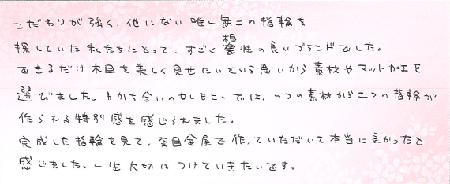 こだわりが強く、他にない唯一無二の指輪を
探していた私たちにとって、すごく相性の良いブランドでした。
できるだけ木目を美しく見せたいという思いから素材やマット加工を
選びました。1から会いのセレモニーでは、1つの素材から二つの指輪が
作られる特別感を感じられました。
完成した指輪を見て、杢目金屋で作っていただいて本当に良かったと
感じました。一生大切につけていきたいです。